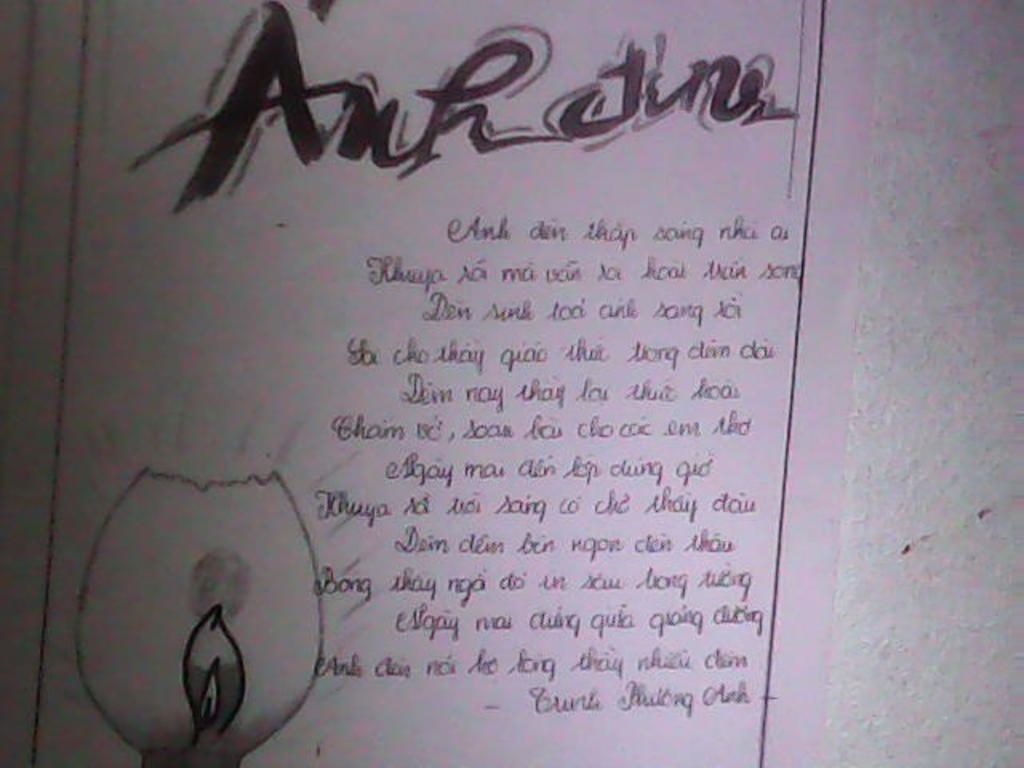 Ánh đèn
Ánh đèn thắp sáng nhà ai
Khuya rồi mà vẫn ra hoài trên song
Đèn sinh toả ánh sáng rồi
Sa cho thầy giáo thức trong đêm dài
Đêm nay thầy lại thức hoài
Chấm vở, soạn bài cho các em thơ
Ngày mai đến lớp đúng giờ
Khuya rồi trời sáng có chờ thầy đâu
Đêm đêm bên ngọn đèn thâu
Bóng thầy ngả đó in sâu trong tường
Ngày mai đứng giữa giảng đường
Ánh đèn nói hộ lòng thầy nhiều đêm
- Trinh Phương Anh -